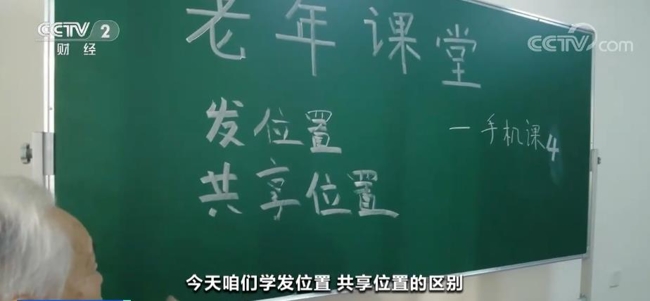 CCTV 2
财经
CCTV.com
老年课堂
发位置
一手机课4
共享位置
今天咱们学发位置 共享位置的区别